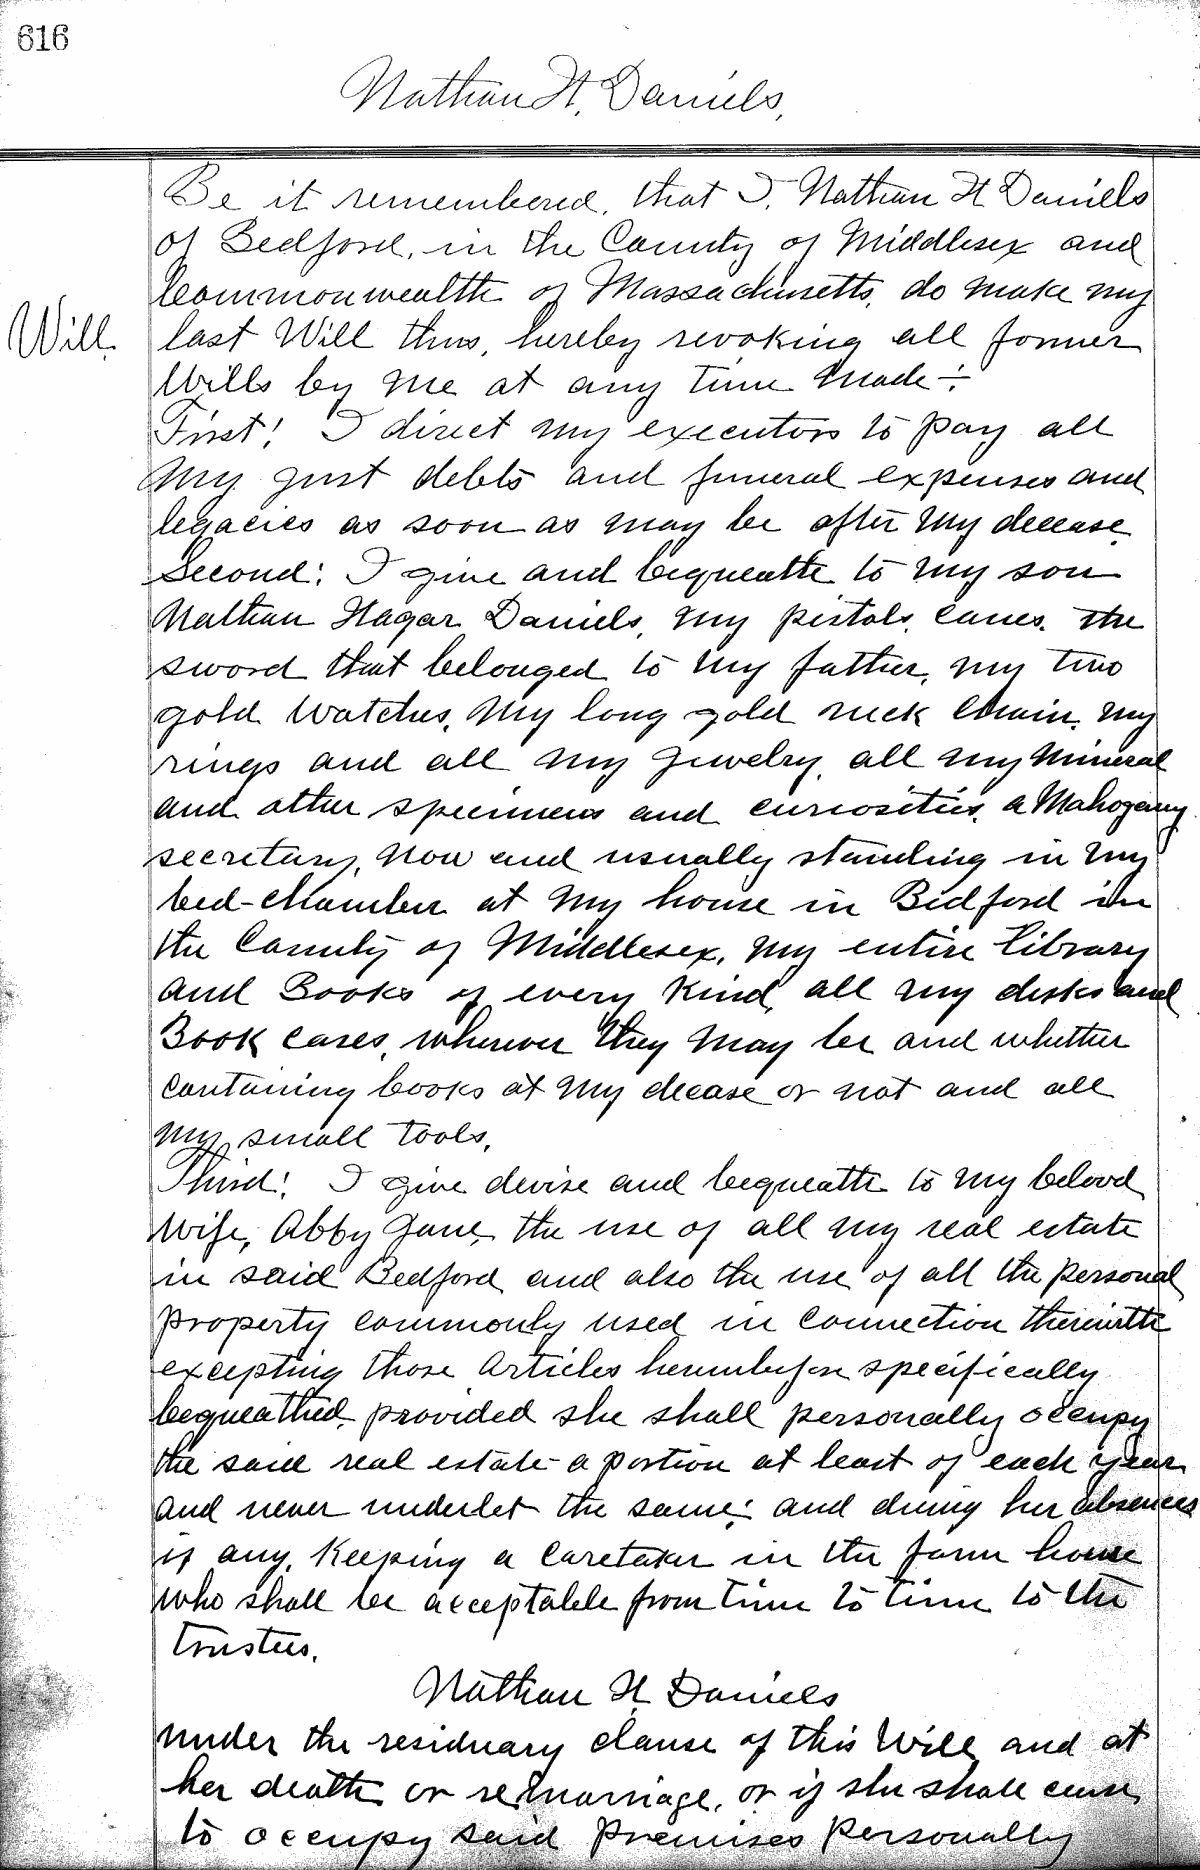 616
Nathan H. Daniels.
Will.
Be it remembered, that I, Nathan H Daniels
of Bedford, in the County of Middlesex and
Commonwealth of Massachusetts, do make my
last Will thus, hereby revoking all former
Wills by me at any time made:-
First: I direct my executors to pay all
my just debts and funeral expenses and
legacies as soon as may be after my decease.
Second: I give and bequeath to my son
Nathan Hagar Daniels, my pistols, canes, the
sword that belonged to my father, my two
gold Watches, my long gold neck chain, my
rings and all my jewelry, all my mineral
and other specimens and curiosities, a Mahogany
secretary, now and usually standing in my
bed-chamber at my house in Bedford in
the County of Middlesex, my entire library
and Books of every kind, all my desks and
Book cases, wherever they may be and whether
containing books at my decease or not and all
my small tools.
Third: I give devise and bequeath to my beloved
Wife, Abby Jane, the use of all my real estate
in said Bedford and also the use of all the personal
property commonly used in connection therewith
excepting those articles hereinbefore specifically
bequeathed, provided she shall personally occupy
the said real estate a portion at least of each year
and never underlet the same; and during her absences
if any, keeping a caretaker in the farm house
who shall be acceptable from time to time to the
trustees.
Nathan H. Daniels
under the residuary clause of this Will and at
her death or remarriage, or if she shall cease
to occupy said premises personally